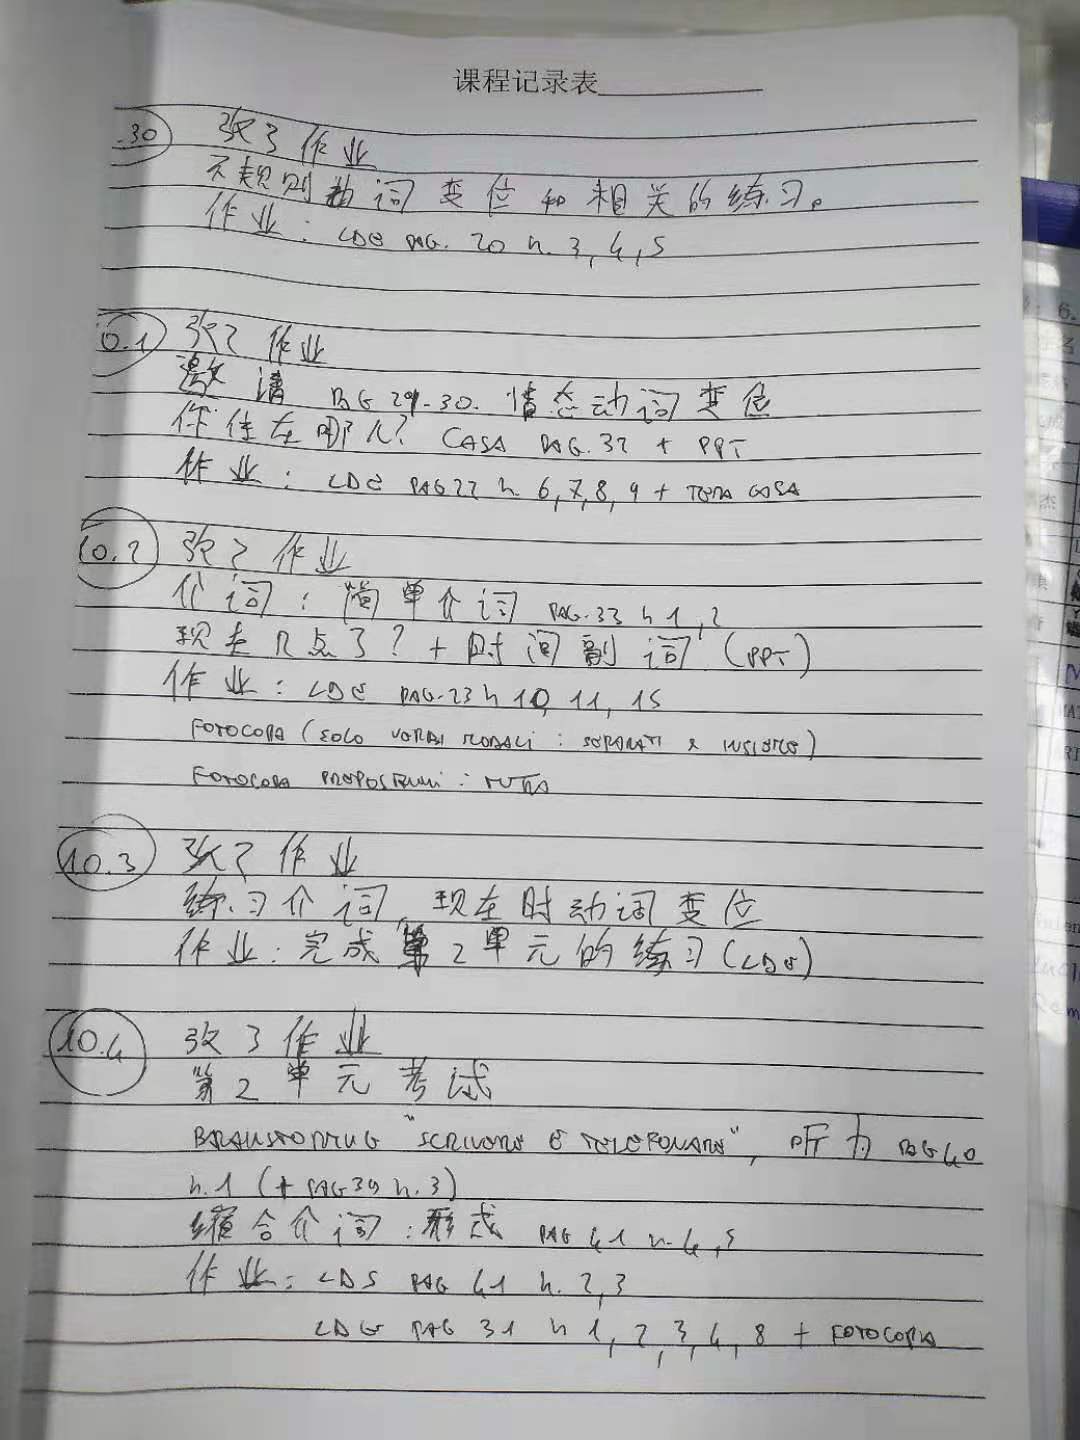 课程记录表
.30 改了作业
不规则动词变位和相关的练习。
作业: LDE PAG. 20 n. 3,4,5
0.1 改了作业
邀请 PAG 29-30. 情态动词变位
你住在哪儿? CASA PAG. 32 + PPT
作业: LDE PAG 22 n. 6,7,8,9 +
10.2 改了作业
介词: 简单介词 PAG. 33 n 1,2
现在几点了? + 时间副词 (PPT)
作业: LDE PAG. 23 n 10, 11, 15
FOTOCOPIA (SOLO VERBI MODALI: SEPARATI E INSIEME)
FOTOCOPIA PREPOSIZIONI: TUTTA
10.3 改了作业
练习介词, 现在时动词变位
作业: 完成第2单元的练习 (LDE)
10.4 改了作业
第2单元考试
BRAINSTORMING "SCRIVERE E TELEFONARE", 听力 PAG 40
n. 1 (+ PAG 39 n. 3)
缩合介词: 形式 PAG 41 n. 4,5
作业: LDS PAG 41 n. 2,3
LDE PAG 31 n 1, 2, 3, 4, 8 + FOTOCOPIA